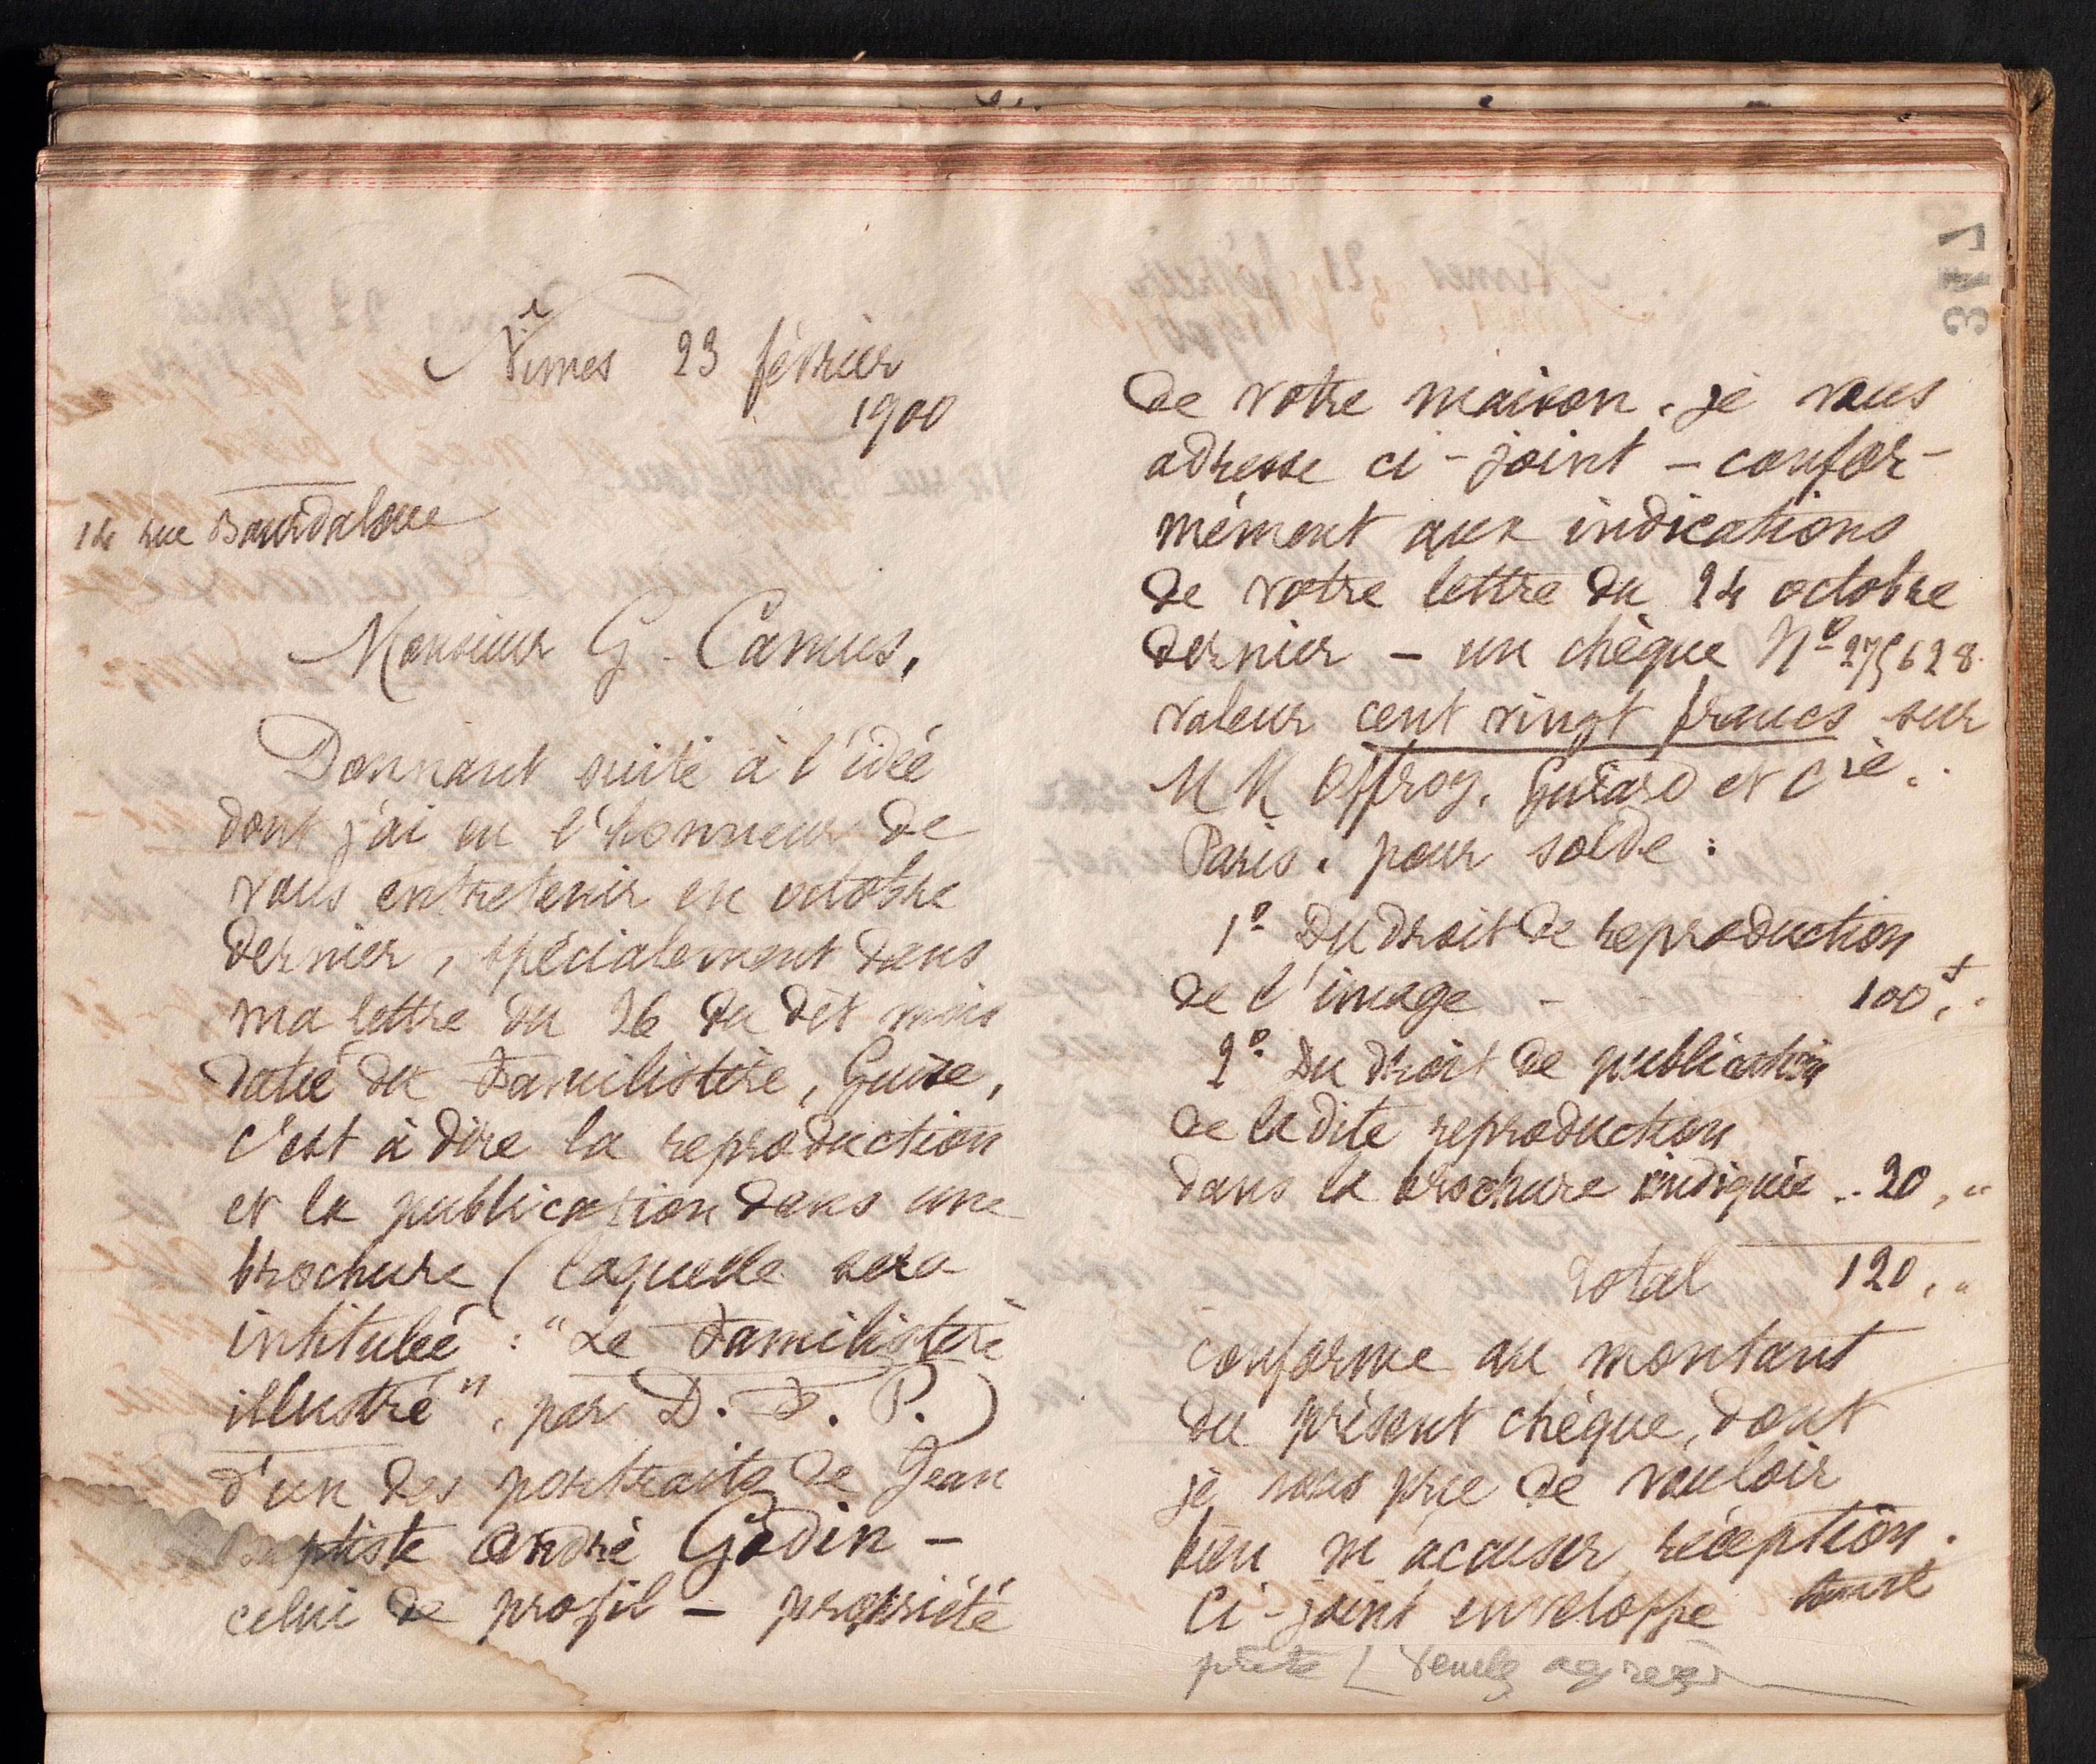 Nîmes 23 février
1900
14 rue Bourdaloue
Monsieur G. Camus,
Donnant suite à l'idée
dont j'ai eu l'honneur de
vous entretenir en octobre
dernier, spécialement dans
ma lettre du 26 du dit mois
datée du Familistère, Guise,
c'est à dire la reproduction
et la publication dans une
brochure (laquelle sera
intitulée : "Le Familistère
illustré", par D. F. P.)
d'un des portraits de Jean
Baptiste André Godin –
celui de profil – propriété
317
de votre maison, je vous
adresse ci-joint – confor-
mément aux indications
de votre lettre du 24 octobre
dernier – un chèque No 275628
valeur cent vingt francs sur
MM Offroy, Guiard et Cie.
Paris. pour solde :
1o Du droit de reproduction
de l'image - - 100f,"
2o Du droit de publication
de la dite reproduction
dans la brochure indiquée .. 20,"
Total 120,"
conforme au montant
du présent chèque, dont
je vous prie de vouloir
bien m'acuser réception.
Ci-joint enveloppe toute
prête / Veuillez agréer